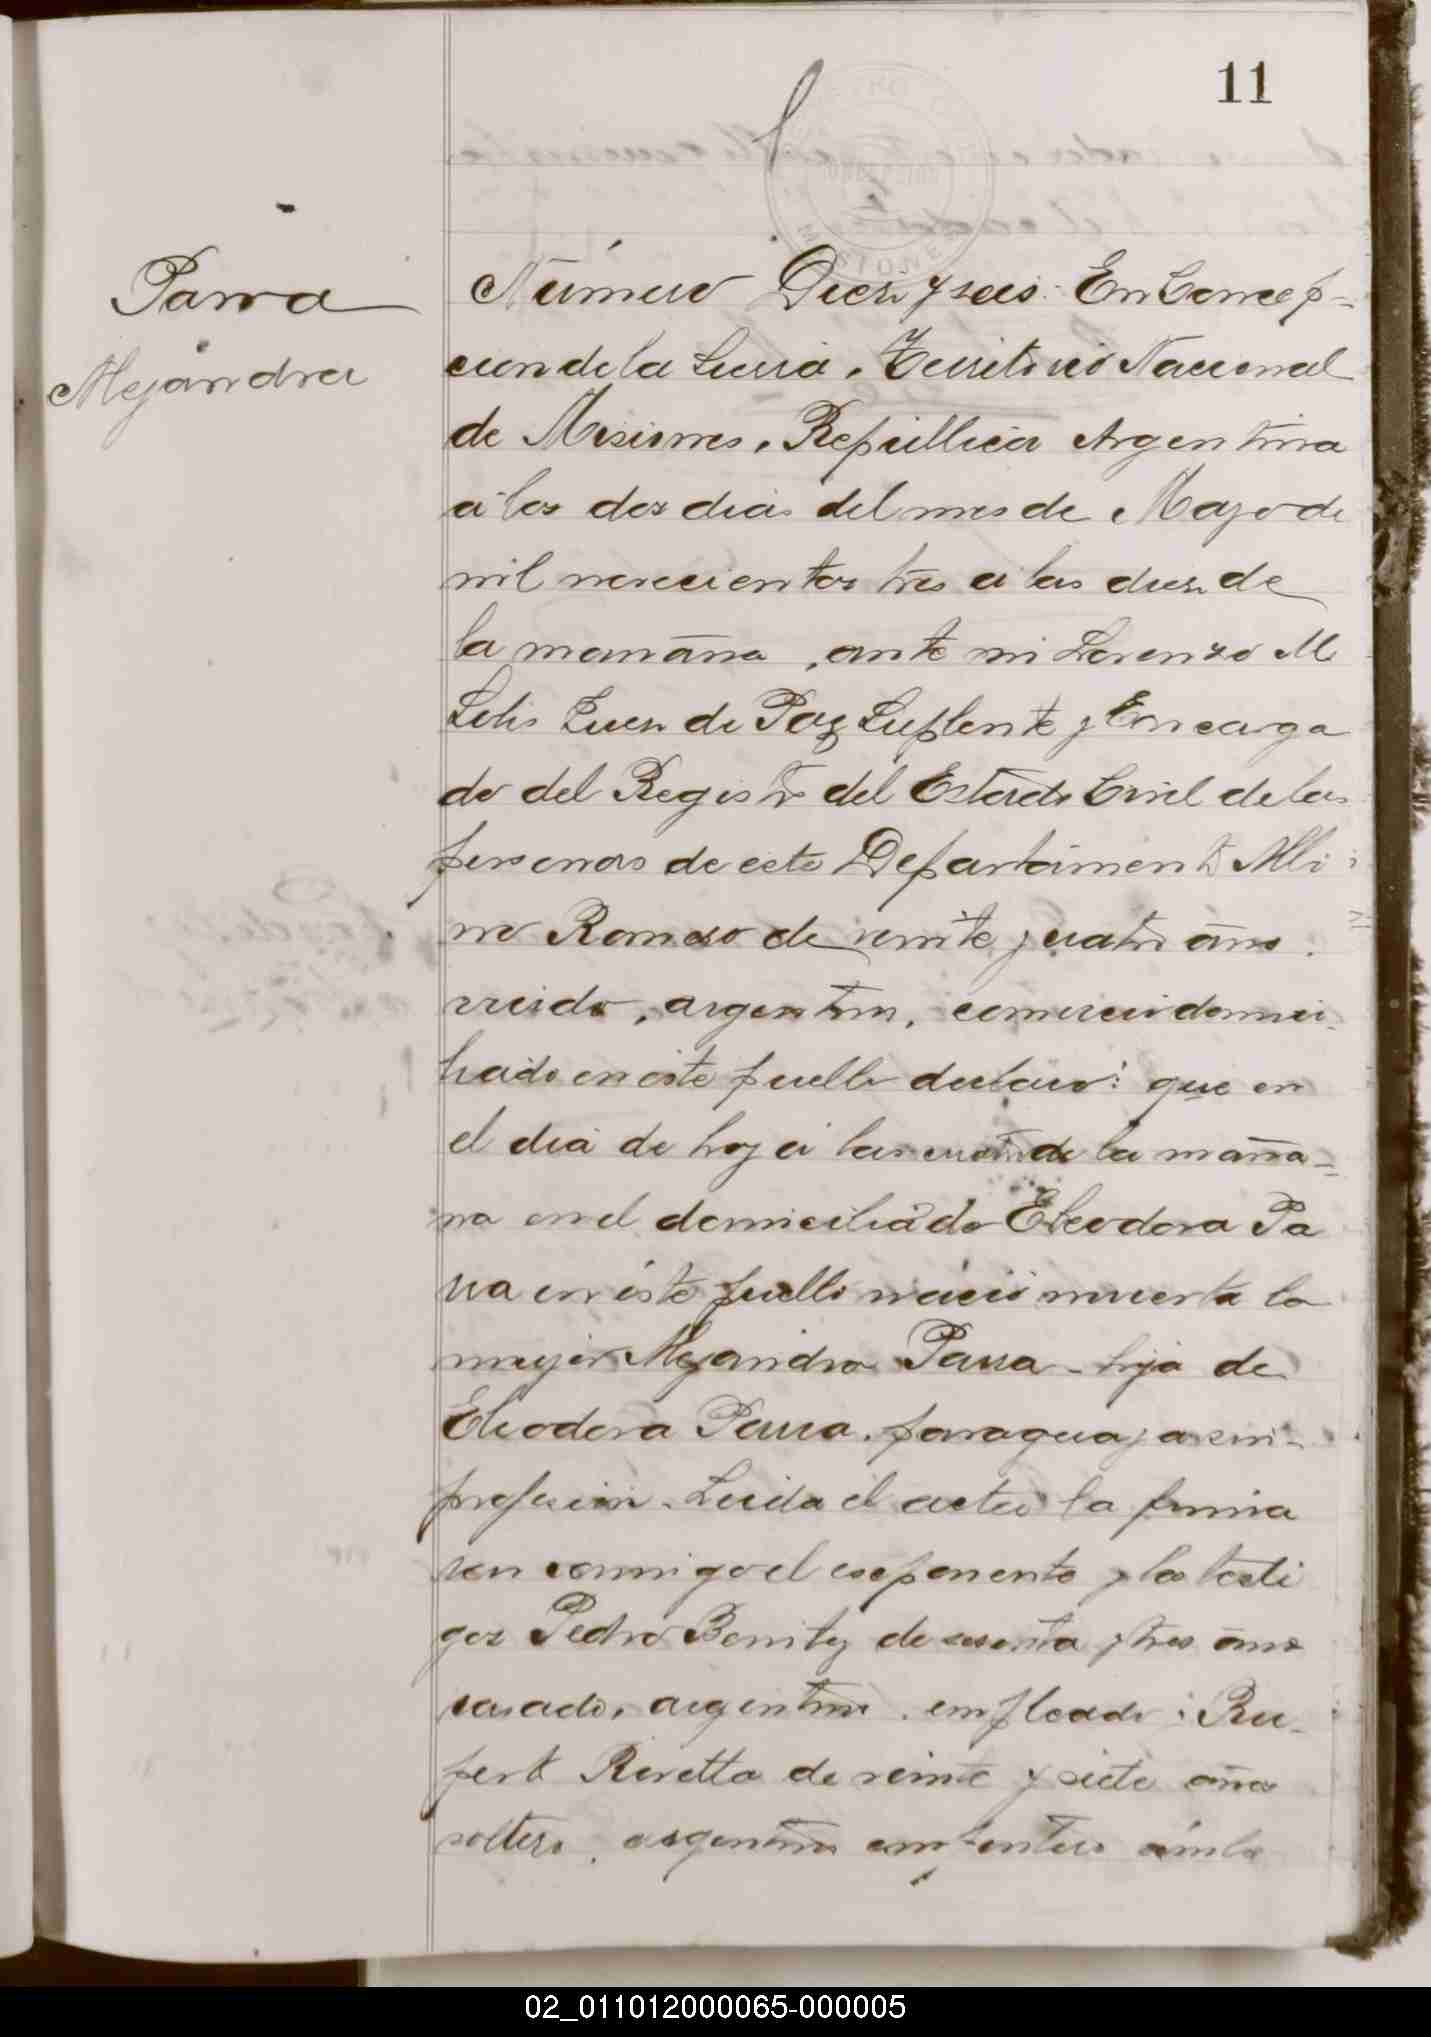 11
Parra
Alejandra
Número Diez y seis. En Concep-
cion de la Sierra, Territorio Nacional
de Misiones, Republica Argentina
a los dos dias del mes de Mayo de
mil novecientos tres a las diez de
la mañana, ante mi Lorenzo M
Solis Juez de Paz Suplente y Encarga
do del Registro del Estado Civil de las
personas de este Departamento Albi
no Romero de veinte y cuatro años.
viudo, argentino, comercio domici-
liado en este pueblo declaró: que en
el dia de hoy a las cuatro de la maña-
na en el domicilio de Eleodora Pa
rra en este pueblo nació muerta la
mujer Alejandra Parra - hija de
Eleodora Parra, paraguaya sin-
profesion. Leida el acta la firma
ron conmigo el esponente y los testi
gos Pedro Benitez de sesenta y tres años
casado, argentino, empleado; Ru-
perto Rivetta de veinte y siete años
soltero, argentino carpintero ambos
02_011012000065-000005